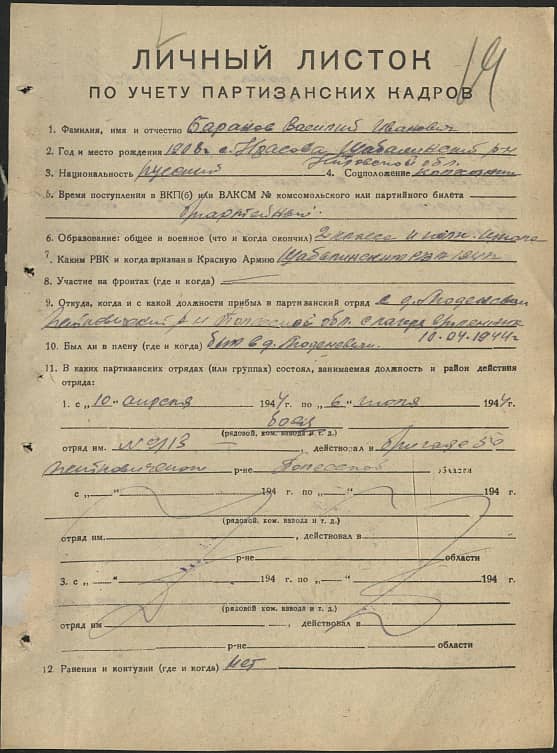 ЛИЧНЫЙ ЛИСТОК
ПО УЧЕТУ ПАРТИЗАНСКИХ КАДРОВ
1. Фамилия, имя и отчество Баранов Василий Иванович
2. Год и место рождения 1908 г. с. Шабалинский р-н
Кировской обл.
3. Национальность русский 4. Соцположение колхозник
5. Время поступления в ВКП(б) или ВЛКСМ № комсомольского или партийного билета
б/партейный
6. Образование: общее и военное (что и когда окончил) 2 класса
7. Каким РВК и когда призван в Красную Армию Шабалинским РВК
8. Участие на фронтах (где и когда)
9. Откуда, когда и с какой должности прибыл в партизанский отряд с д.
р-н Полесской обл. с лагеря
10.04.1944 г.
10. Был ли в плену (где и когда) был в д.
11. В каких партизанских отрядах (или группах) состоял, занимаемая должность и район действия
отряда:
1. с „10“ апреля 1944 г. по „6“ июля 1944 г.
боец
(рядовой, ком. взвода и т. д.)
отряд им. , действовал в бригаде 50
р-не Полесской области
с „ “ 194 г. по „ “ 194 г.
(рядовой, ком. взвода и т. д.)
отряд им. , действовал в
р-не области
3. с „ “ 194 г. по „ “ 194 г.
(рядовой, ком. взвода и т. д.)
отряд им , действовал в
р-не области
12. Ранения и контузии (где и когда) нет